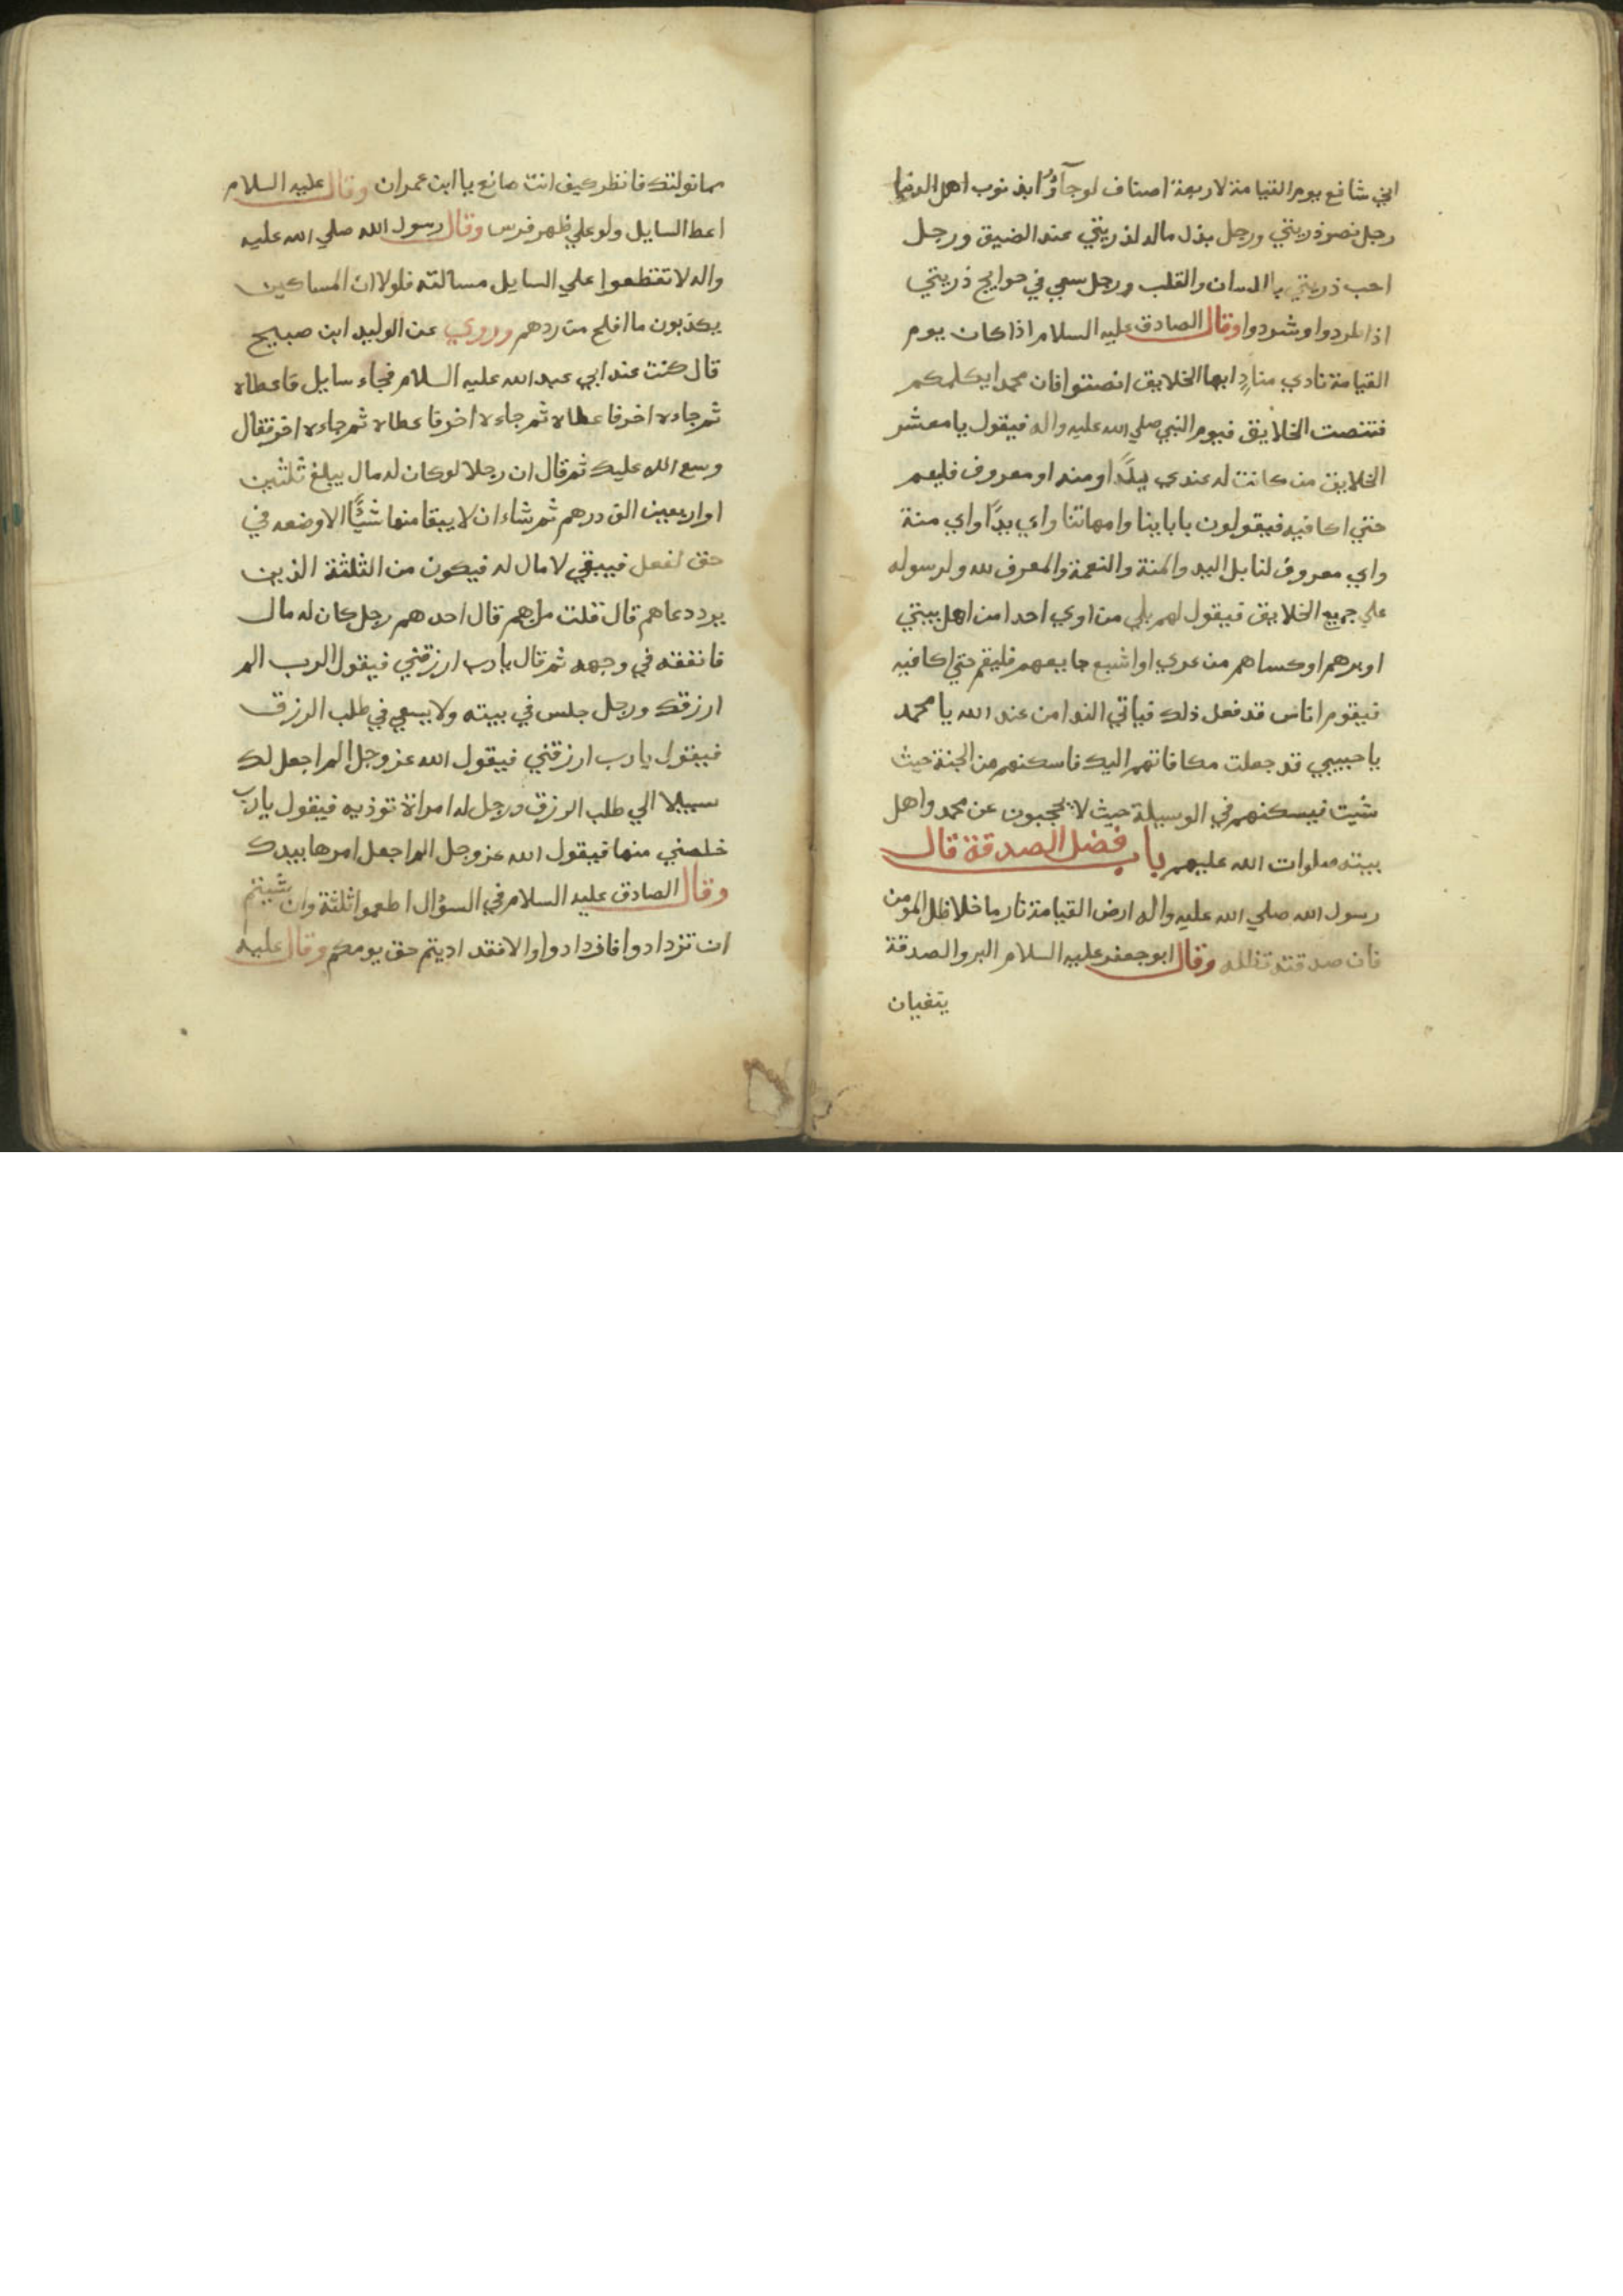 اني شافع يوم القيامة لاربعة اصناف لو جآؤا بذنوب اهل الدنيا
رجل نصر ذريتي ورجل بذل ماله لذريتي عند الضيق ورجل
احب ذريتي باللسان والقلب ورجل سعي في حوايج ذريتي
اذا طردوا وشردوا وقال الصادق عليه السلام اذا كان يوم
القيامة نادي منادٍ ايها الخلايق انصتوا فان محمدا يكلمكم
فتنصت الخلايق فيوم النبي صلي الله عليه واله فيقول يا معشر
الخلايق من كانت له عندي يدًا او منه او معروف فليقم
حتي اكافيه فيقولون باباينا وامهاتنا واي يدًا واي منة
واي معروف لنا بل اليد والمنة والنعمة والمعرف لله ولرسوله
علي جميع الخلايق فيقول لهم بلي من اوي احدا من اهل بيتي
او برهم او كساهم من عري او اشبع جايعهم فليقم حتي اكافيه
فيقوم اناس قد فعل ذلك فياتي الندا من عند الله يا محمد
يا حبيبي قد جعلت مكافاتهم اليك فاسكنهم من الجنة حيث
شيت فيسكنهم في الوسيلة حيث لا يحجبون عن محمد واهل
بيته صلوات الله عليهم باب فضل الصدقة قال
رسول الله صلي الله عليه واله ارض القيامة نار ما خلا ظل المومن
فان صدقته تظله وقال ابو جعفر عليه السلام البر والصدقة
يتفيان
مما نولتك فانظر كيف انت صانع يا ابن عمران وقال عليه السلام
اعط السايل ولو علي ظهر فرس وقال رسول الله صلي الله عليه
واله لا تقطعوا علي السايل مسالته فلولا ان المساكين
يكذبون ما افلح من ردهم وروي عن الوليد ابن صبيح
قال كنت عند ابي عبد الله عليه السلام فجاء سايل فاعطاه
ثم جاءه اخر فاعطاه ثم جاءه اخر فاعطاه ثم جاءه اخر فقال
وسع الله عليك ثم قال ان رجلا لو كان له مال يبلغ ثلثين
او اربعين الف درهم ثم شاء ان لا يبقا منها شيًّا الا وضعه في
حق لفعل فيبقي لا مال له فيكون من الثلثة الذين
يردد دعاهم قال قلت من هم قال احدهم رجل كان له مال
فانفقه في وجهه ثم قال يا رب ارزقني فيقول الرب الم
ارزقك ورجل جلس في بيته ولا يسعي في طلب الرزق
فيقول يا رب ارزقني فيقول الله عز وجل الم اجعل لك
سبيلا الي طلب الرزق ورجل له امراة توذيه فيقول يا رب
خلصني منها فيقول الله عز وجل الم اجعل امرها بيدك
وقال الصادق عليه السلام في السؤال اطعموا ثلثة وان شيتم
ان تزدادوا فازدادوا والا فقد اديتم حق يومكم وقال عليه